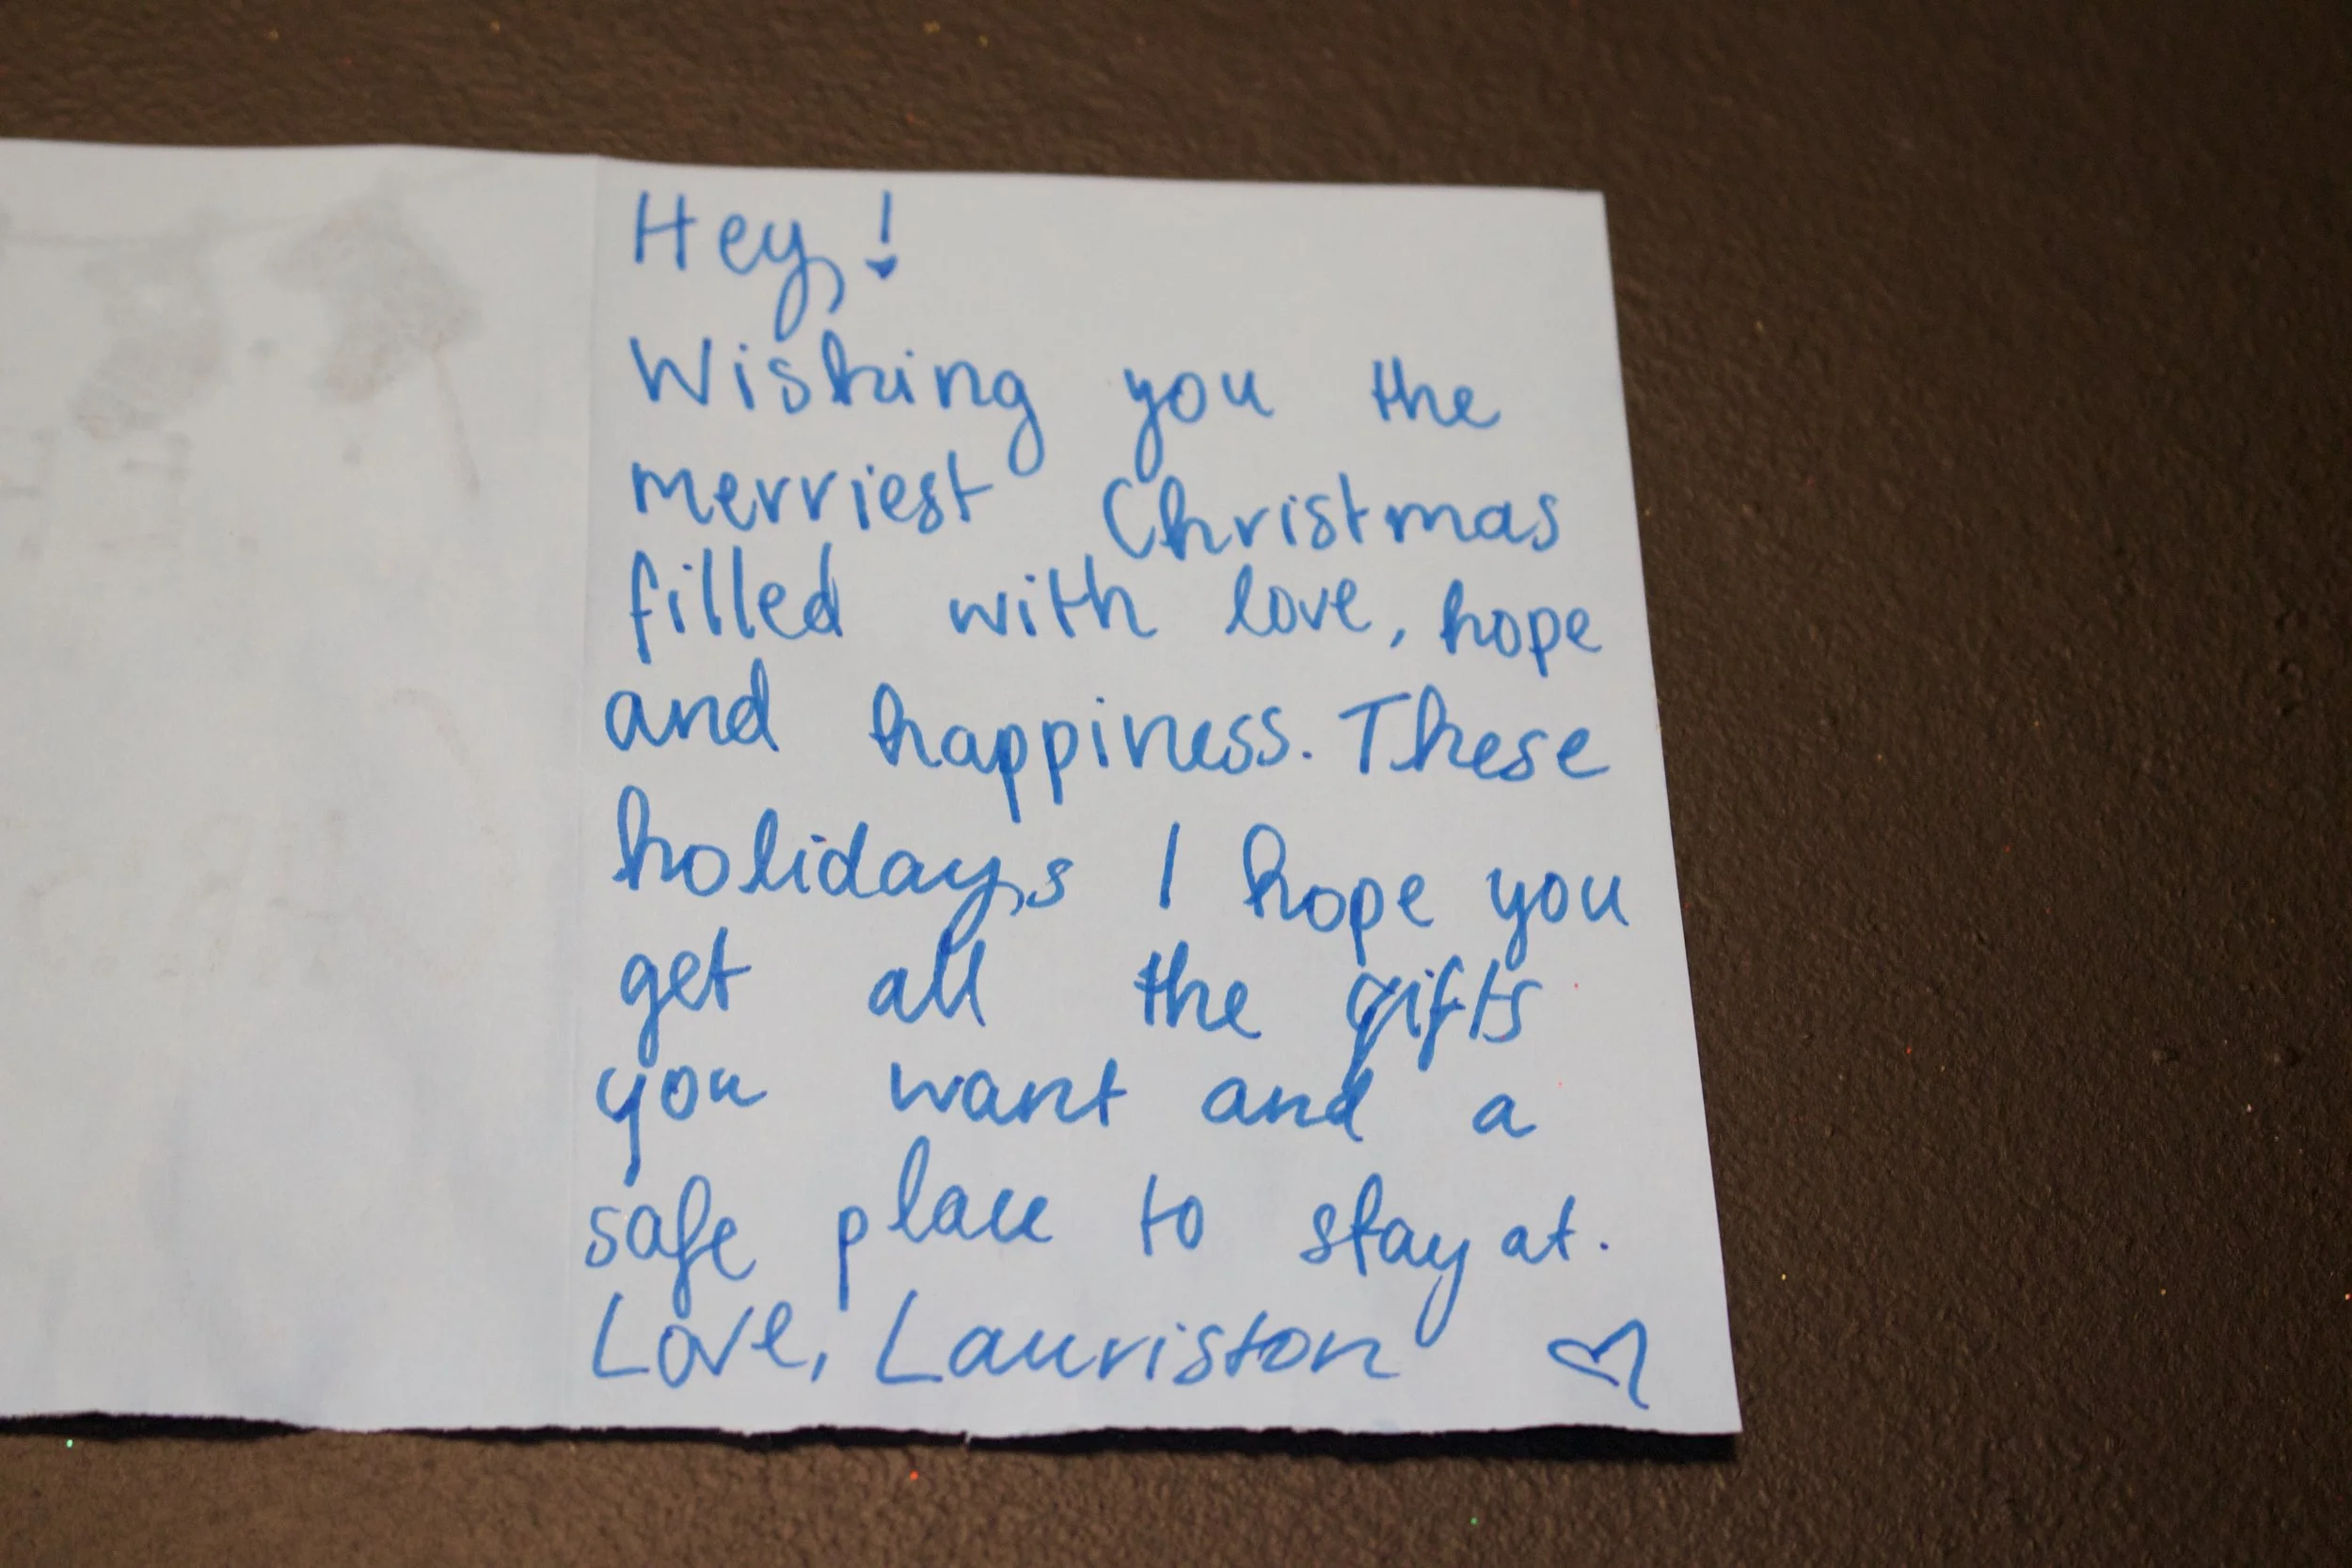 Hey!
Wishing you the
merriest Christmas
filled with love, hope
and happiness. These
holidays I hope you
get all the gifts
you want and a
safe place to stay at.
Love, Lauriston ♡